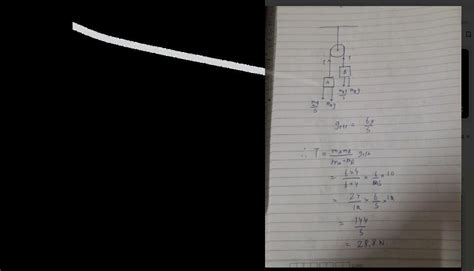 T
T
A
B
mg/5 m_A g
m_B g/5 m_B g
g_eff = 6g/5
∴ T = m_A m_B / m_A + m_B g_eff
= 6×4 / 6+4 × 6/5 × 10
= 24/10 × 6/5 × 10
= 144/5
= 28.8 N